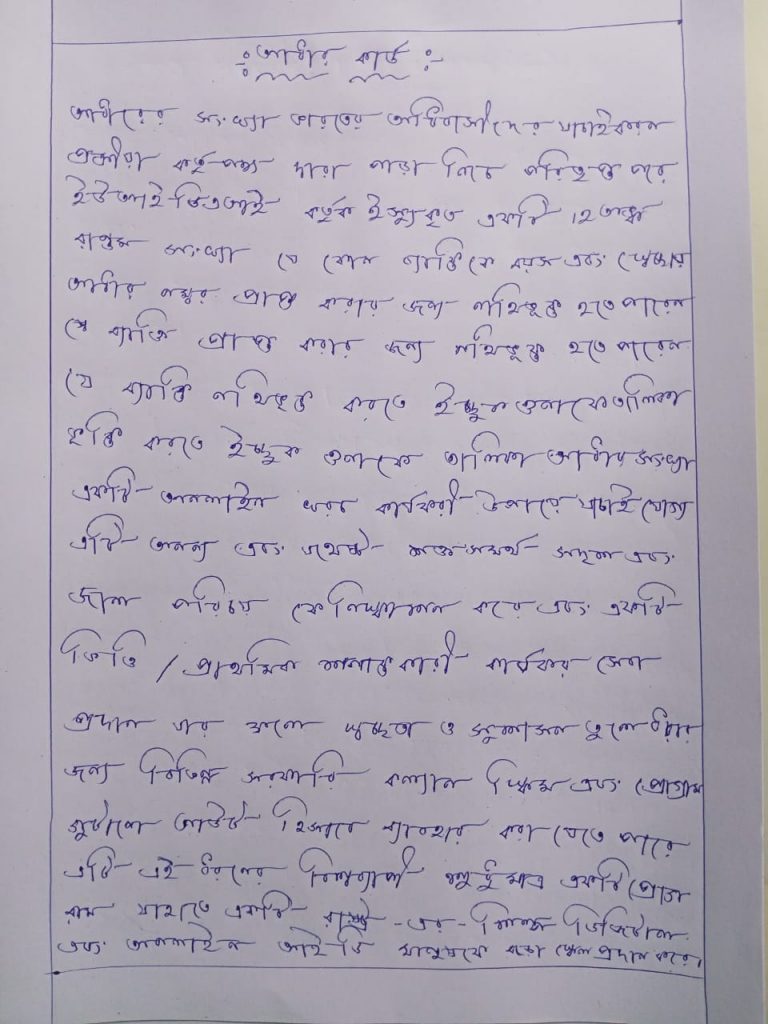 আধার কার্ড
আধারের সংখ্যা ভারতের অধিবাসীদের যাচাইকরন
প্রক্রীয়া কর্তৃপক্ষ দ্বারা পরিতৃপ্ত পরে
ইউআইডিএআই কর্তৃক ইস্যুকৃত একটি 12 অঙ্ক
সংখ্যা যে কোন ব্যক্তিকে বয়স এবং
আধার নম্বর প্রাপ্ত করার জন্য নথিভুক্ত হতে পারেন
যে ব্যক্তি প্রাপ্ত করার জন্য নথিভুক্ত হতে পারেন
যে ব্যক্তি নথিভুক্ত করতে ইচ্ছুক
করতে ইচ্ছুক তালিকা আধার সংখ্যা
একটি অনলাইন খরচ কার্যকরী উপায়ে যাচাইযোগ্য
এটি অনন্য এবং যথেষ্ট সমর্থ নকল এবং
জাল পরিচয় কে নিষ্কাশন করে এবং একটি
ভিত্তি / প্রাথমিক শনাক্তকারী কার্যকর সেবা
প্রদান এর ফলে স্বচ্ছতা ও সুশাসন তুলে ধরার
জন্য বিভিন্ন সরকারি কল্যান স্কিম এবং প্রোগ্রাম
আউট হিসাবে ব্যবহার করা যেতে পারে
এটি এই ধরনের বিশ্বব্যাপী শুধুমাত্র একটি প্রোগ্রা
যাহাতে একটি রাষ্ট্র -এর- ডিজিটাল
এবং অনলাইন আইডি মানুষকে প্রদান করে।